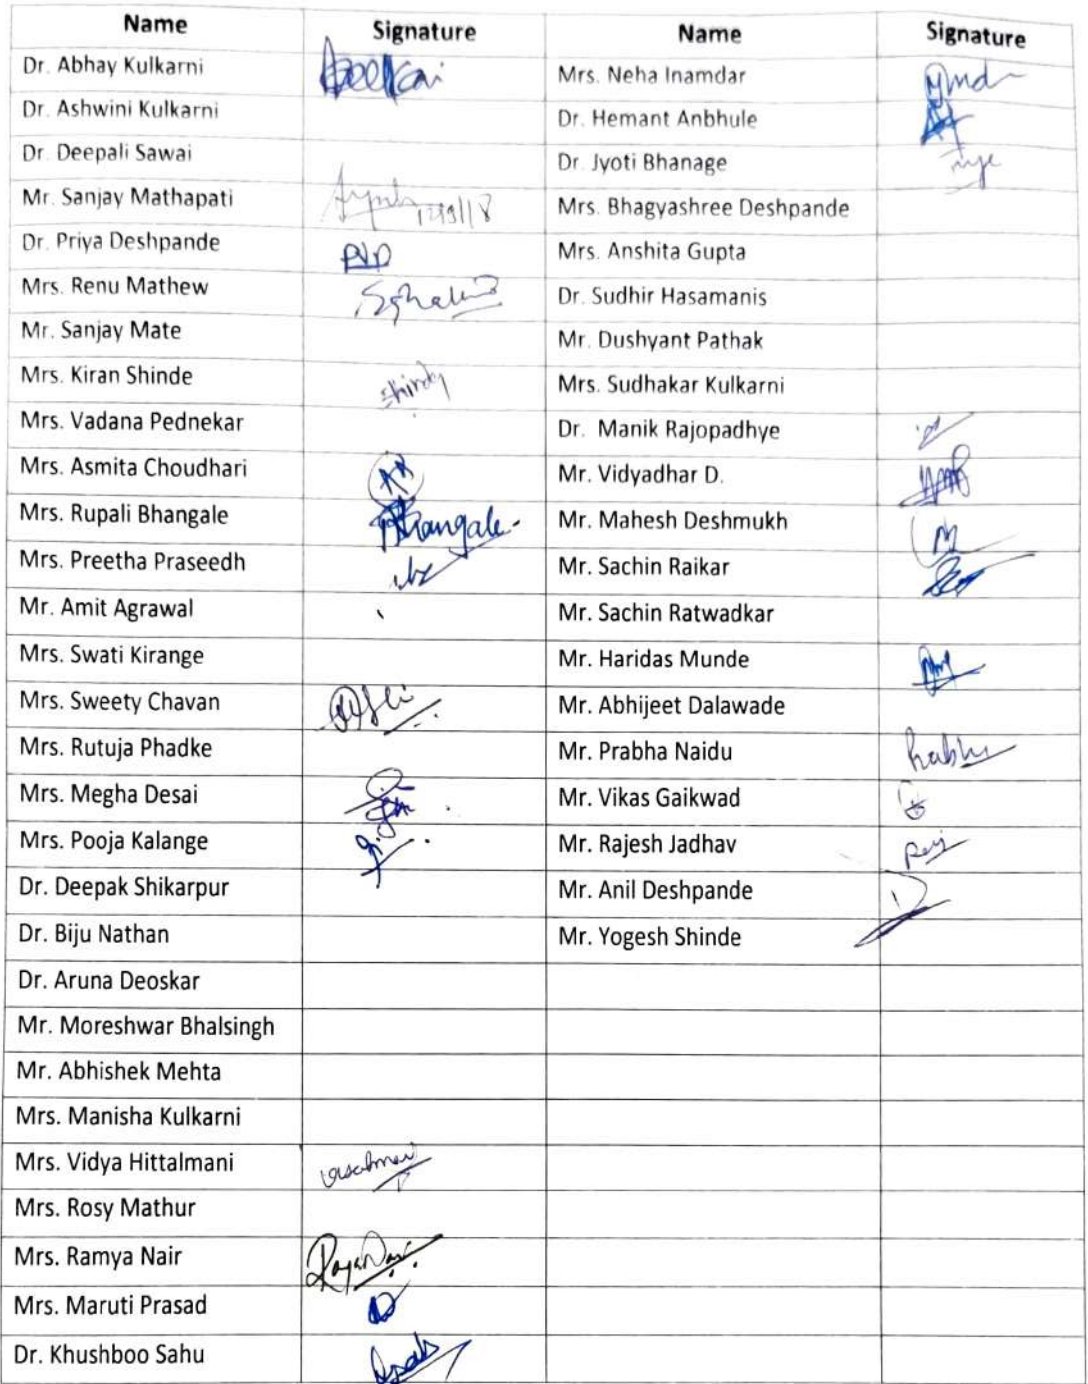 Name Signature Name Signature
Dr. Abhay Kulkarni Mrs. Neha Inamdar
Dr. Ashwini Kulkarni Dr. Hemant Anbhule
Dr. Deepali Sawai Dr. Jyoti Bhanage
Mr. Sanjay Mathapati Mrs. Bhagyashree Deshpande
Dr. Priya Deshpande Mrs. Anshita Gupta
Mrs. Renu Mathew Dr. Sudhir Hasamanis
Mr. Sanjay Mate Mr. Dushyant Pathak
Mrs. Kiran Shinde Mrs. Sudhakar Kulkarni
Mrs. Vadana Pednekar Dr. Manik Rajopadhye
Mrs. Asmita Choudhari Mr. Vidyadhar D.
Mrs. Rupali Bhangale Bhangale Mr. Mahesh Deshmukh
Mrs. Preetha Praseedh Mr. Sachin Raikar
Mr. Amit Agrawal Mr. Sachin Ratwadkar
Mrs. Swati Kirange Mr. Haridas Munde
Mrs. Sweety Chavan Mr. Abhijeet Dalawade
Mrs. Rutuja Phadke Mr. Prabha Naidu
Mrs. Megha Desai Mr. Vikas Gaikwad
Mrs. Pooja Kalange Mr. Rajesh Jadhav
Dr. Deepak Shikarpur Mr. Anil Deshpande
Dr. Biju Nathan Mr. Yogesh Shinde
Dr. Aruna Deoskar
Mr. Moreshwar Bhalsingh
Mr. Abhishek Mehta
Mrs. Manisha Kulkarni
Mrs. Vidya Hittalmani
Mrs. Rosy Mathur
Mrs. Ramya Nair
Mrs. Maruti Prasad
Dr. Khushboo Sahu